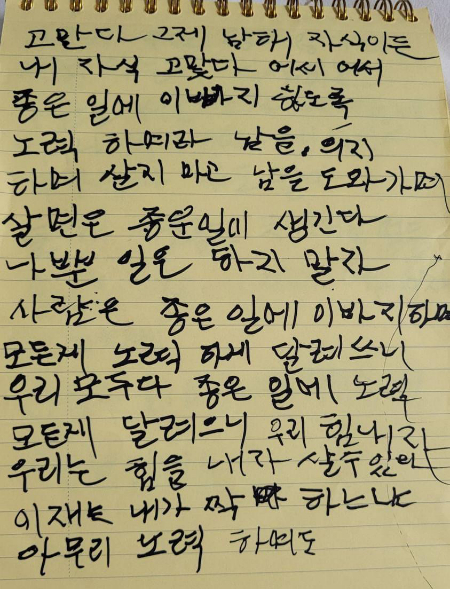 고맙다 그제 남태 자식이든
내 자식 고맞다 어서 어서
좋은 일에 이바지 하도록
노력 하여라 남을 의지
하며 살지 마고 남을 도와가며
살면은 좋은일이 생긴다
나뿐 일은 하지 말자
사람은 좋은 일에 이바지하며
모든제 노력 하게 달려쓰니
우리 모두다 좋은 일에 노력
모든제 달려으니 우리 힘내자
우리는 힘을 내자 살수있다
이재는 내가 짝 하는나
아무리 노력 하며도